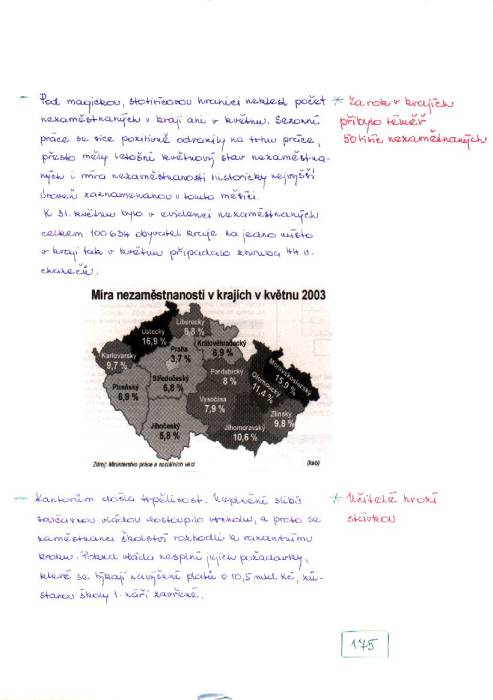 - Pod magickou, stotisícovou hranici neklesl počet
nezaměstnaných v kraji ani v květnu. Sezonní
práce se sice pozitivně odrazily na trhu práce,
přesto měly letošní květnový stav nezaměstna-
ných i míra nezaměstnanosti historicky nejvyšší
úroveň zaznamenanou v tomto měsíci.
K 31. květnu bylo v evidenci nezaměstnaných
celkem 100 634 obyvatel kraje. Na jedno místo
v kraji tak v květnu připadalo zhruba 44 u-
chazečů.
* Za rok v krajích
přibylo téměř
50 tisíc nezaměstnaných
Míra nezaměstnanosti v krajích v květnu 2003
Ústecký
16,9 %
Liberecký
8,8 %
Karlovarský
9,7 %
Praha
3,7 %
Královéhradecký
6,9 %
Plzeňský
6,9 %
Středočeský
6,8 %
Pardubický
8 %
Moravskoslezský
15,9 %
Olomoucký
11,4 %
Vysočina
7,9 %
Zlínský
9,8 %
Jihočeský
5,8 %
Jihomoravský
10,6 %
Zdroj: Ministerstvo práce a sociálních věcí
(kub)
- Kantorům došla trpělivost. Neplnění slibů
současnou vládou dostoupilo vrcholu, a proto se
zaměstnanci školství rozhodli k razantnímu
kroku. Pokud vláda nesplní jejich požadavky,
které se týkají navýšení platů o 10,5 mld Kč, zů-
stanou školy 1. září zavřené.
* Učitelé hrozí
stávkou
175